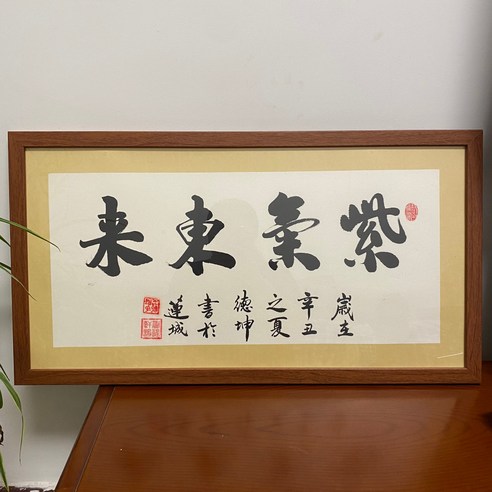 紫氣東来
歲在
辛丑
之夏
德坤
書於
蓮城